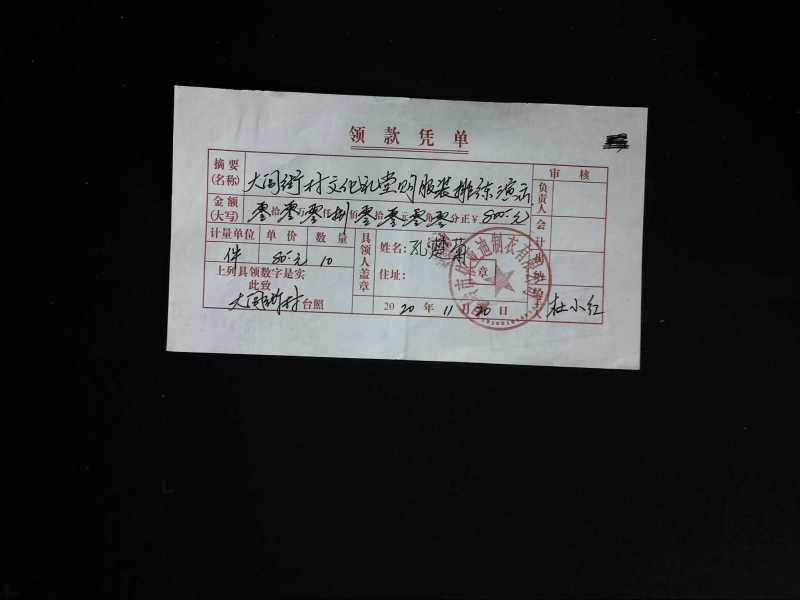 领款凭单
摘要(名称) 大同街村文化礼堂购服装排练演示 审核
金额(大写) 零拾零万零仟捌佰零拾零元零角零分正¥ 800.元 负责人
计量单位 单价 数量 具领人盖章 姓名: 孔梦菊 会计
件 80.元 10 住址: 章
上列具领数字是实
此致
大同街村台照 2020年11月30日 经手人 杜小红
迪制衣有限